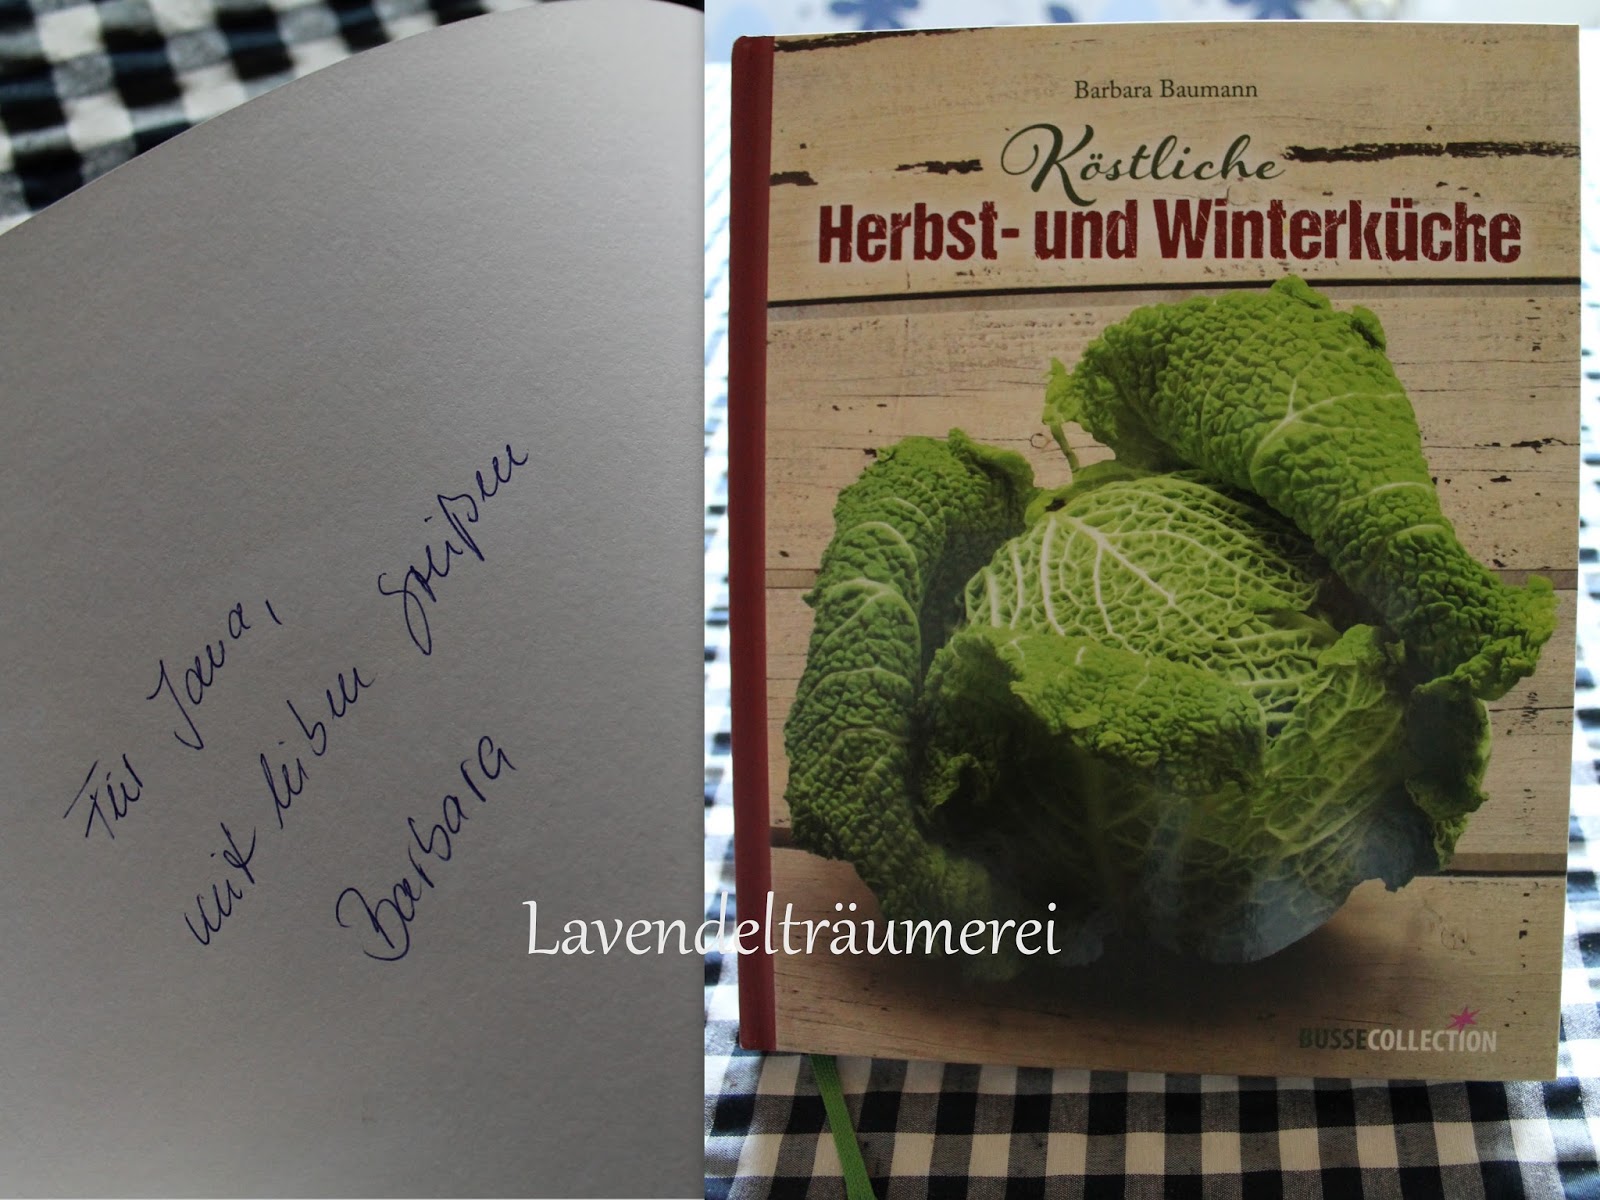 Für Jana,
mit lieben Grüßen
Barbara
Barbara Baumann
Köstliche
Herbst- und Winterküche
Lavendelträumerei
BUSSECOLLECTION